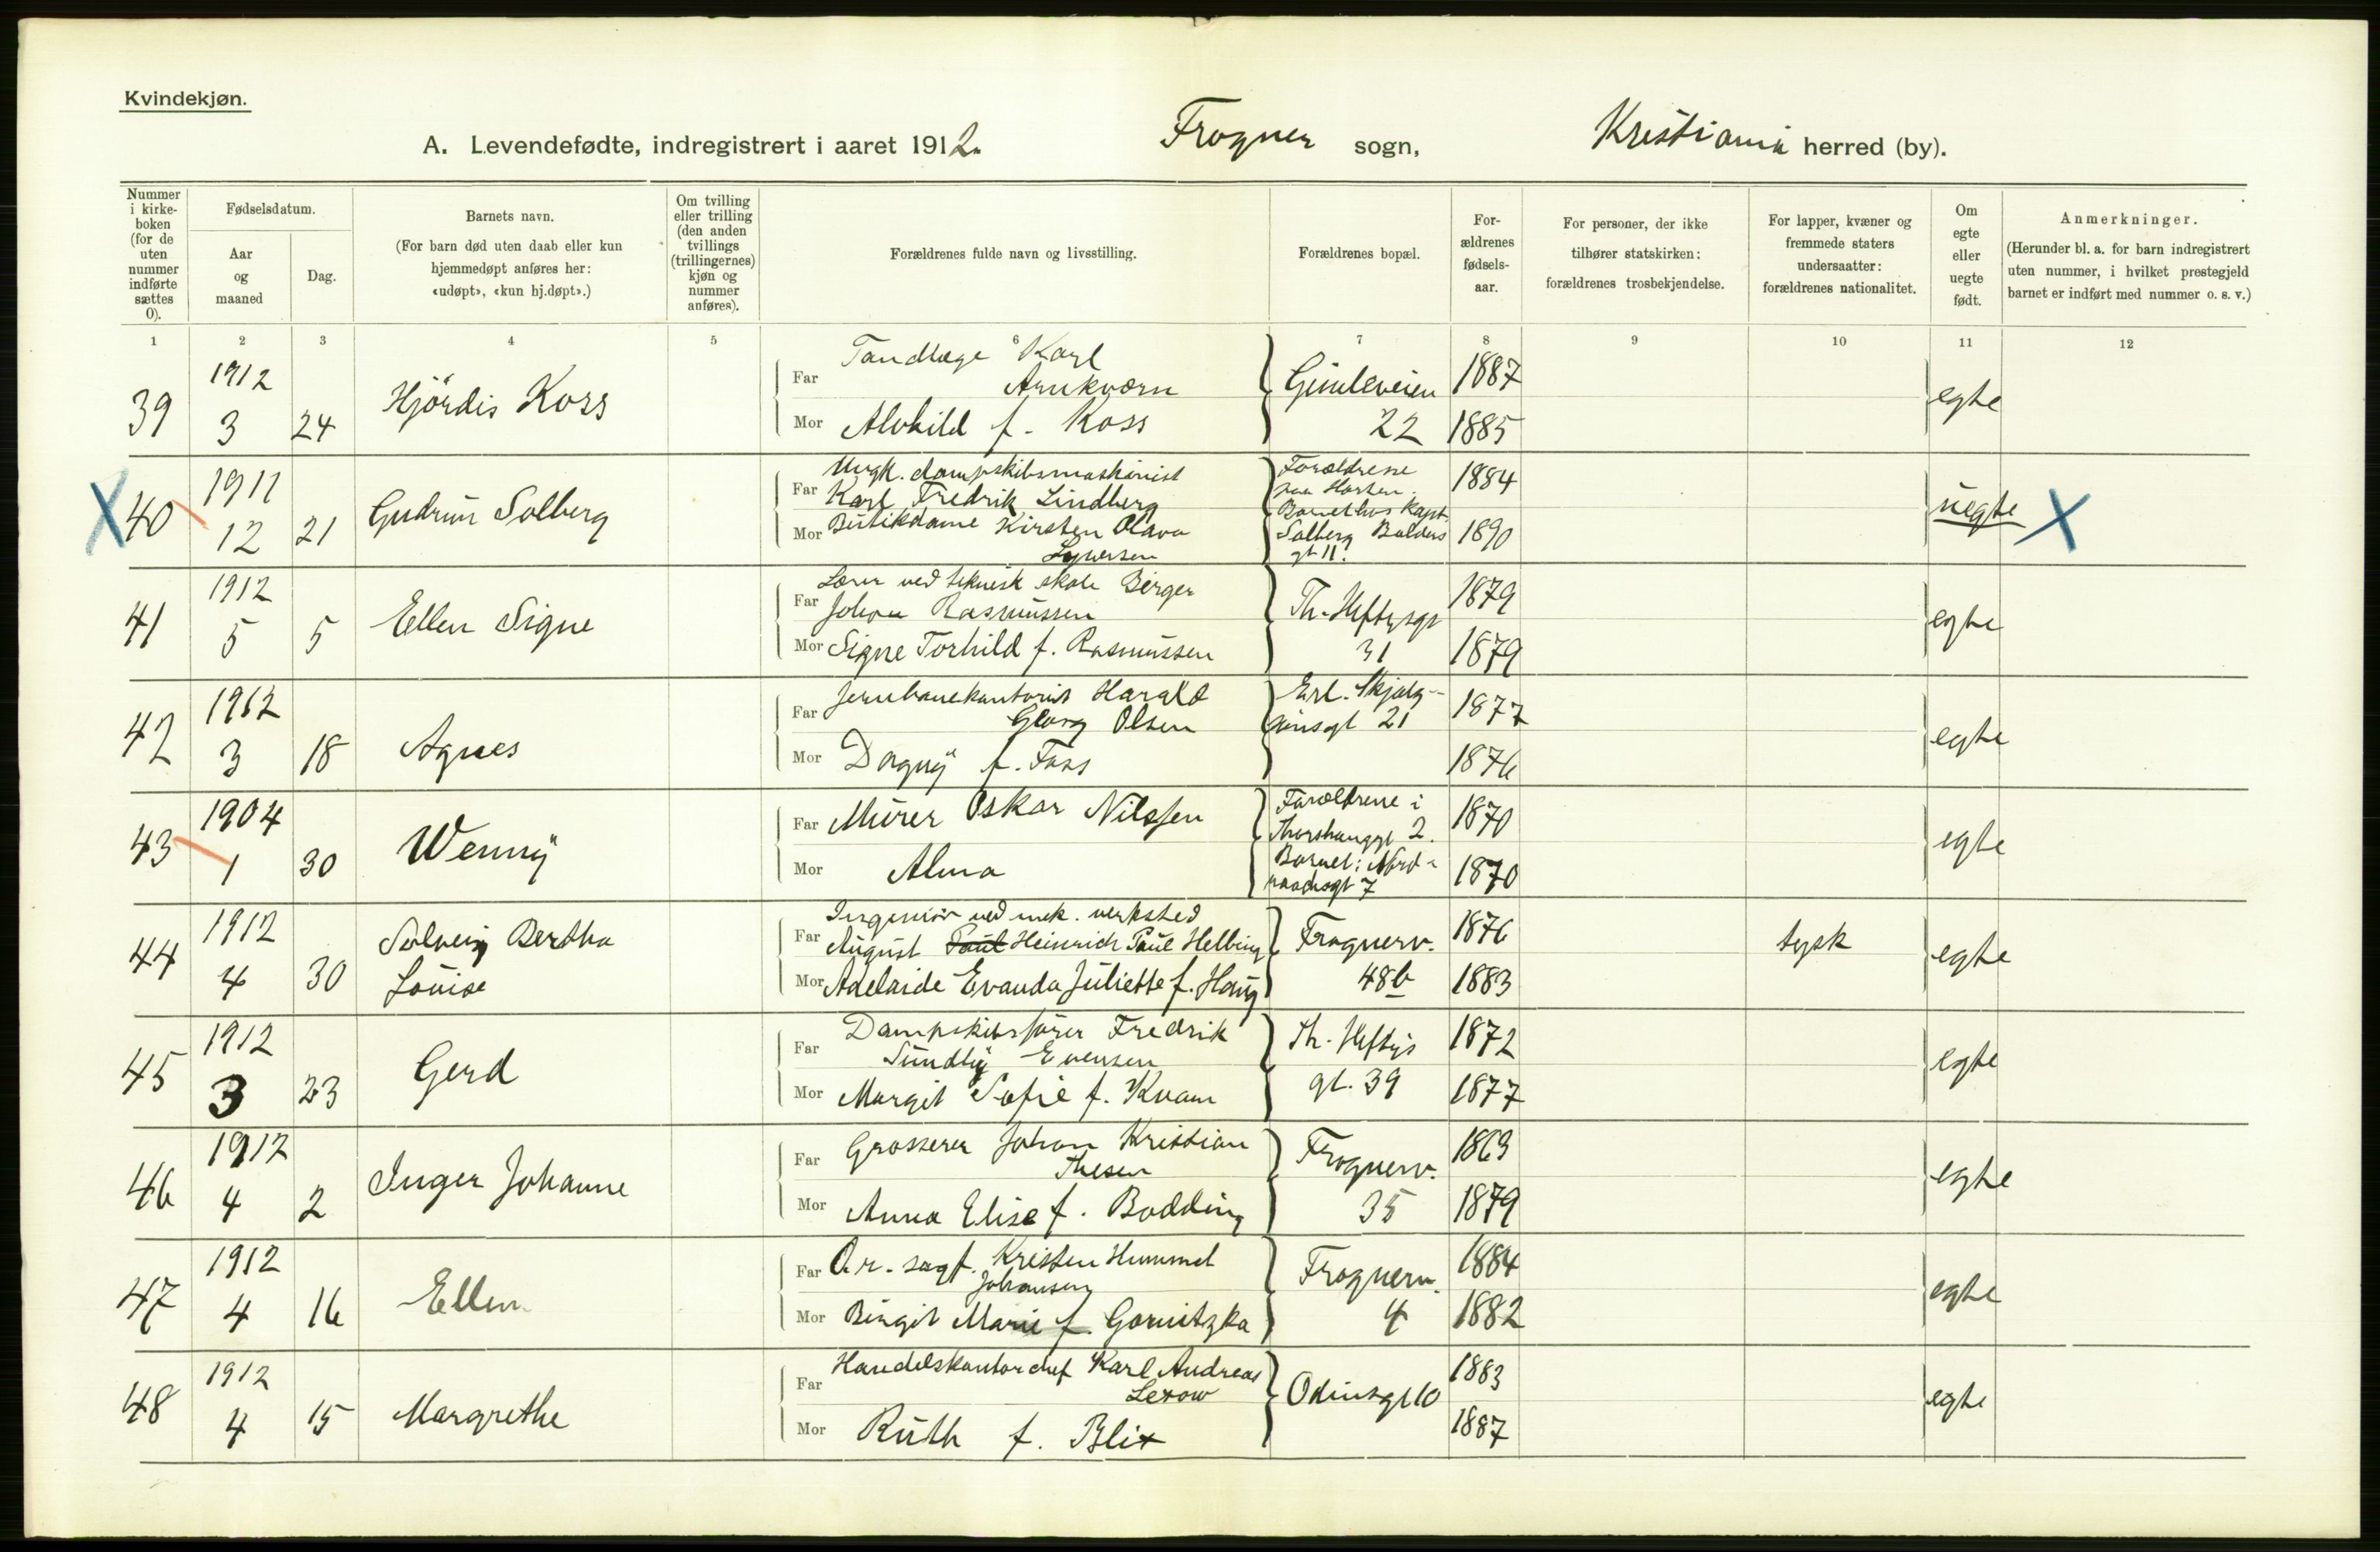 Kvindekjøn.
A. Levendefødte, indregistrert i aaret 1912. Frogner sogn, Kristiania herred (by).
Nummer i kirke-boken (for de uten nummer indførte sættes 0).
Fødselsdatum.
Aar og maaned
Dag.
Barnets navn.
(For barn død uten daab eller kun hjemmedøpt anføres her: «udøpt», «kun hj.døpt».)
Om tvilling eller trilling (den anden tvillings (trillingernes) kjøn og nummer anføres).
Forældrenes fulde navn og livsstilling.
Forældrenes bopæl.
For-ældrenes fødsels-aar.
For personer, der ikke tilhører statskirken: forældrenes trosbekjendelse.
For lapper, kvæner og fremmede staters undersaatter: forældrenes nationalitet.
Om egte eller uegte født.
Anmerkninger.
(Herunder bl. a. for barn indregistrert uten nummer, i hvilket prestegjeld barnet er indført med nummer o. s. v.)
1 2 3 4 5 6 7 8 9 10 11 12
39 1912 3 24 Hjördis Koss
Far Tandlæge Karl Arnkværn
Mor Alvhild f. Koss
Gimleveien 22 1887 1885 egte
X 40 1911 12 21 Gudrun Solberg
Far Ungk. dampskibsmaskinist Karl Fredrik Lindberg
Mor Butikdame Kirsten Olava
Forældrene paa Horten. Barnet hos Kapt. Solberg Balders gt 11. 1884 1890 uegte X
41 1912 5 5 Ellen Signe
Far Lærer ved teknisk skole Birger Johan Rasmussen
Mor Signe Torhild f. Rasmussen
Th. Heftysgt 31 1879 1879 egte
42 1912 3 18 Agnes
Far Jernbanekontorist Harald Georg Olsen
Mor Dagny f. Foss
Erl. Skjalg-sønsgt 21 1877 1876 egte
43 1904 1 30 Wenny
Far Murer Oskar Nilssen
Mor Alma
Forældrene i Thorshauggt 2. Barnet: Nord-raaksgt 7 1870 1870 egte
44 1912 4 30 Solveig Bertha Louise
Far Ingeniør ved mek. verksted August Paul Heinrich Paul Helbing
Mor Adelaide Evanda Juliette f. Haug
Frognerv. 48b 1876 1883 tysk egte
45 1912 3 23 Gerd
Far Dampskibsfører Fredrik Sundby Evensen
Mor Margit Sofie f. Kvam
Th. Heftys gt. 39 1872 1877 egte
46 1912 4 2 Inger Johanne
Far Grosserer Johan Kristian Thesen
Mor Anna Elise f. Bodding
Frognerv. 35 1863 1879 egte
47 1912 4 16 Ellen
Far O.r. sagf. Kristen Hummel Johansen
Mor Birgit Marie f. Gornitzka
Frognerv. 4 1884 1882 egte
48 1912 4 15 Margrethe
Far Handelskontorchef Karl Andreas Lexow
Mor Ruth f. Blix
Odinsgt 10 1883 1887 egte